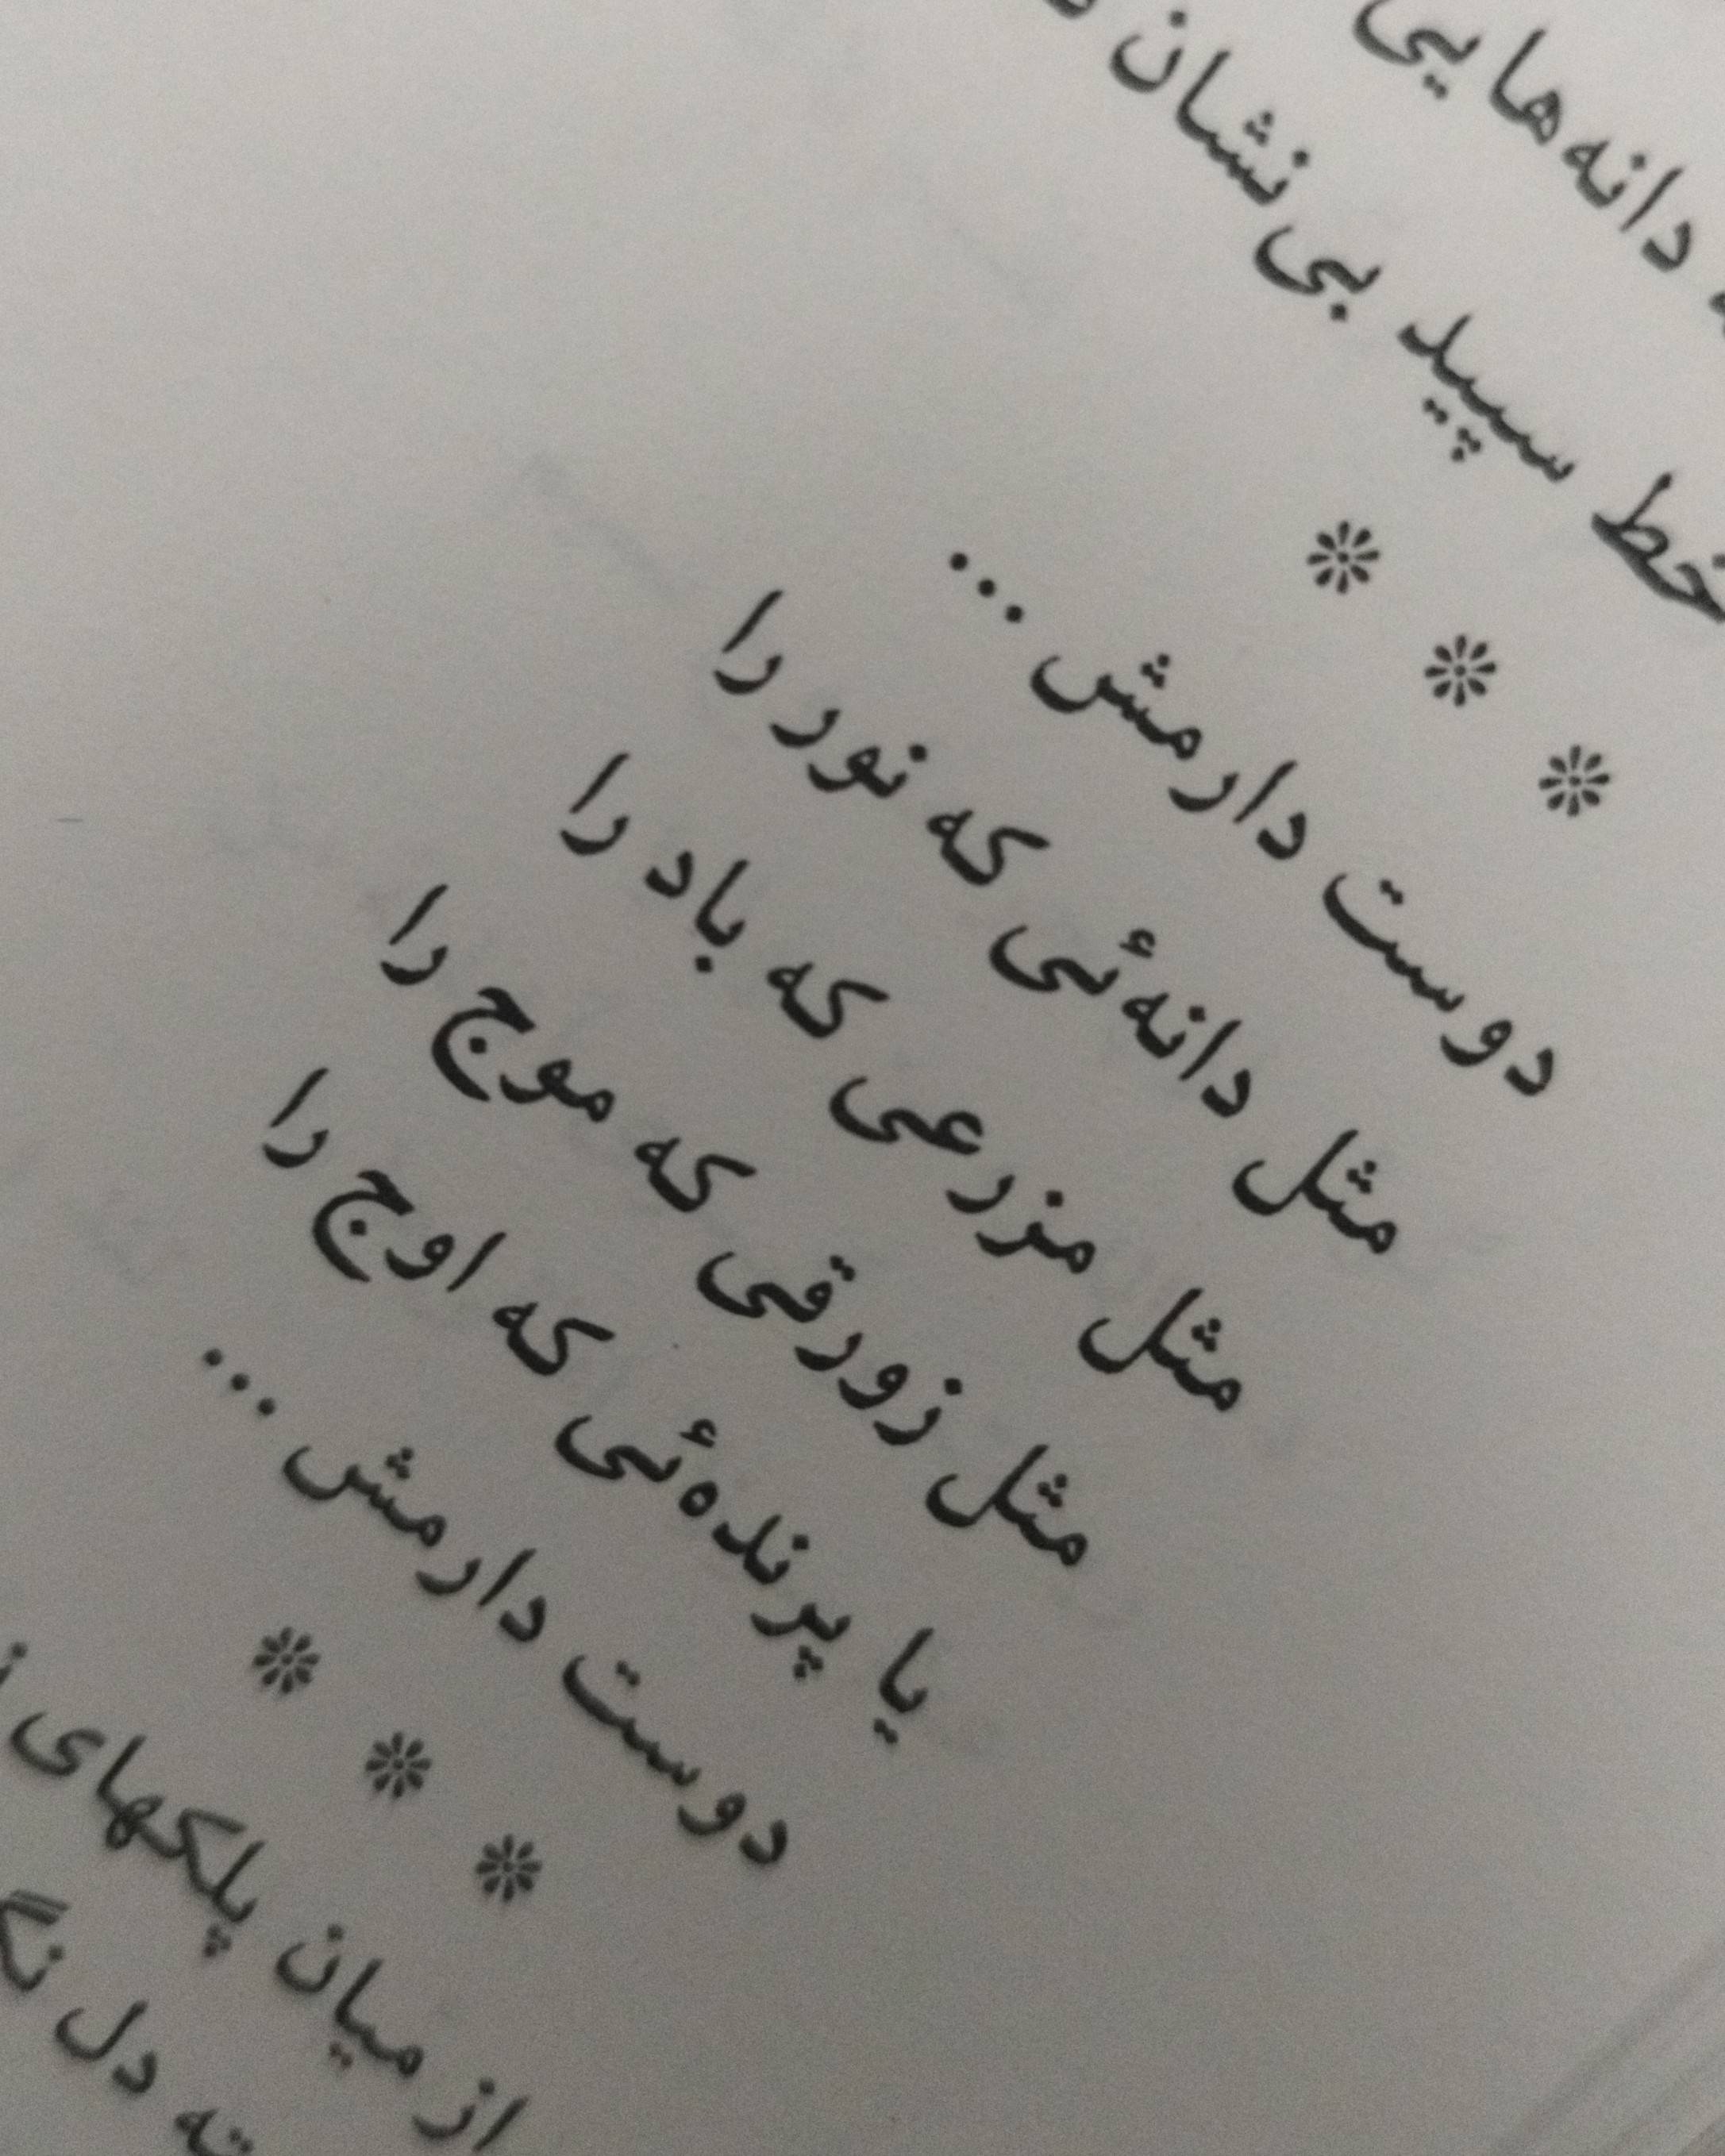 دانه‌هایی
خط سپید بی‌نشان
❊ ❊ ❊
دوست دارمش ...
مثل دانه‌ئی که نور را
مثل مزرعی که باد را
مثل زورقی که موج را
یا پرنده‌ئی که اوج را
دوست دارمش ...
❊ ❊ ❊
از میان پلکهای
دل